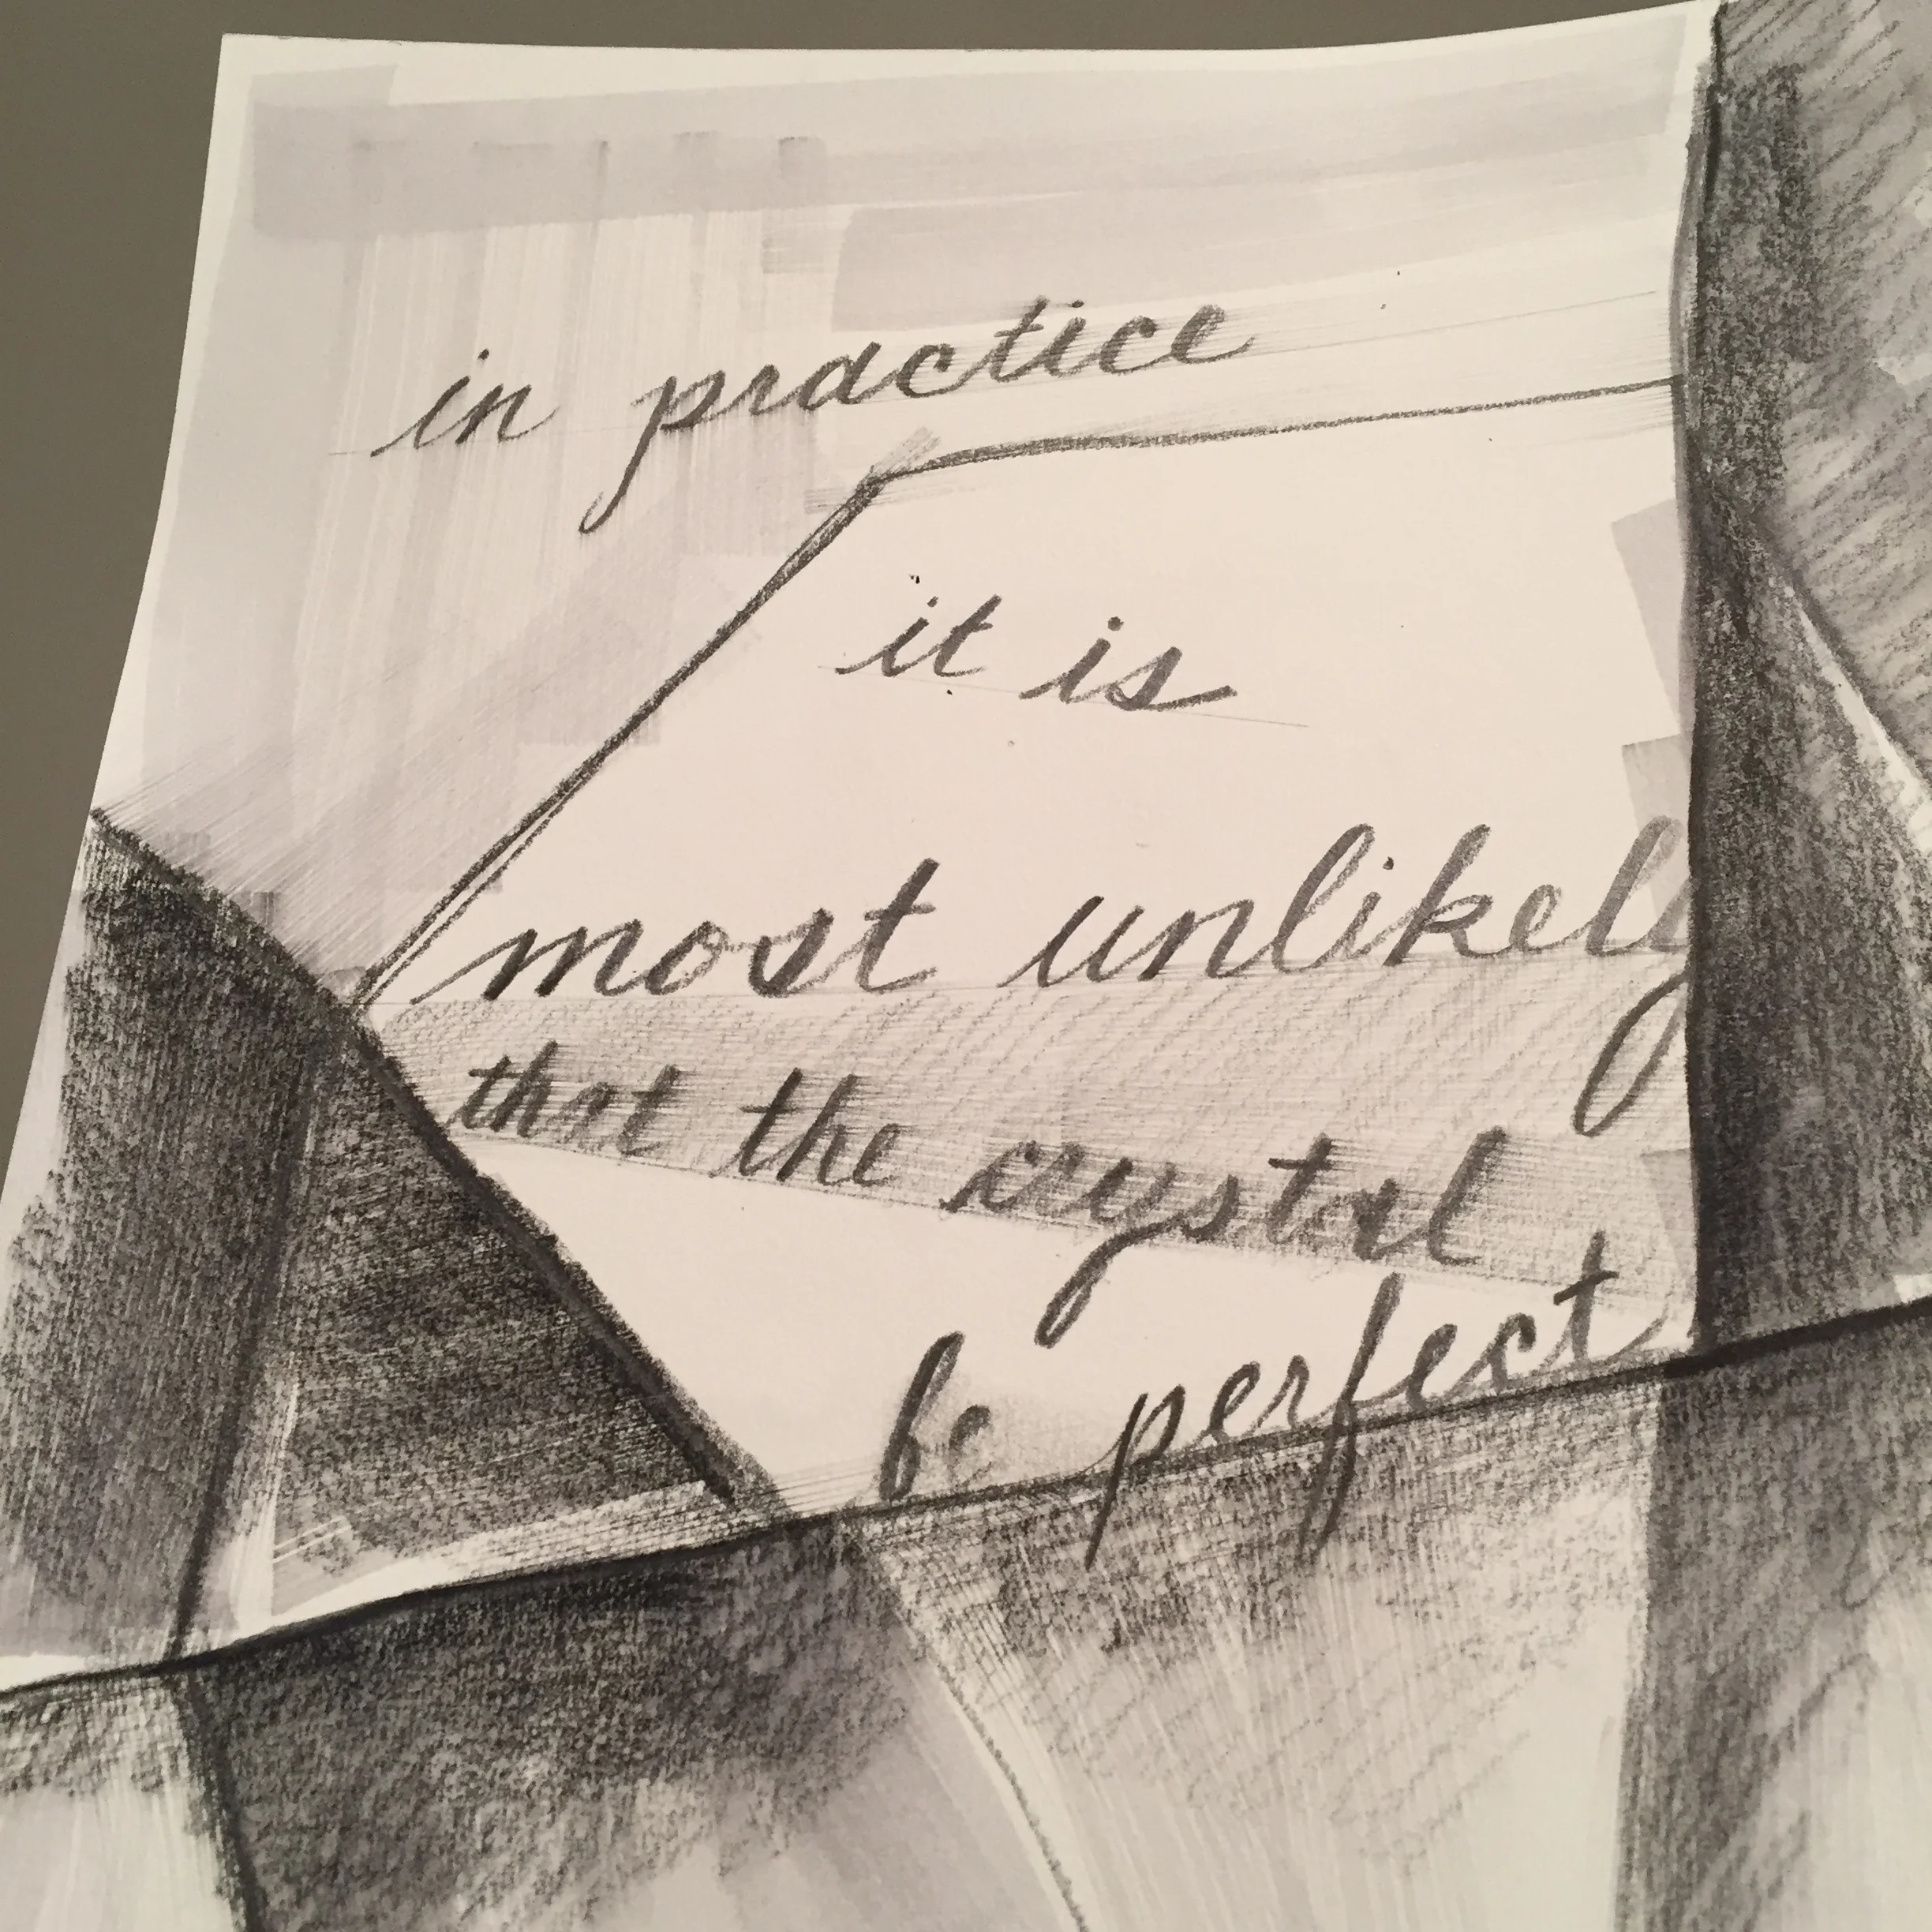 in practice
it is
most unlikely
that the crystal
be perfect